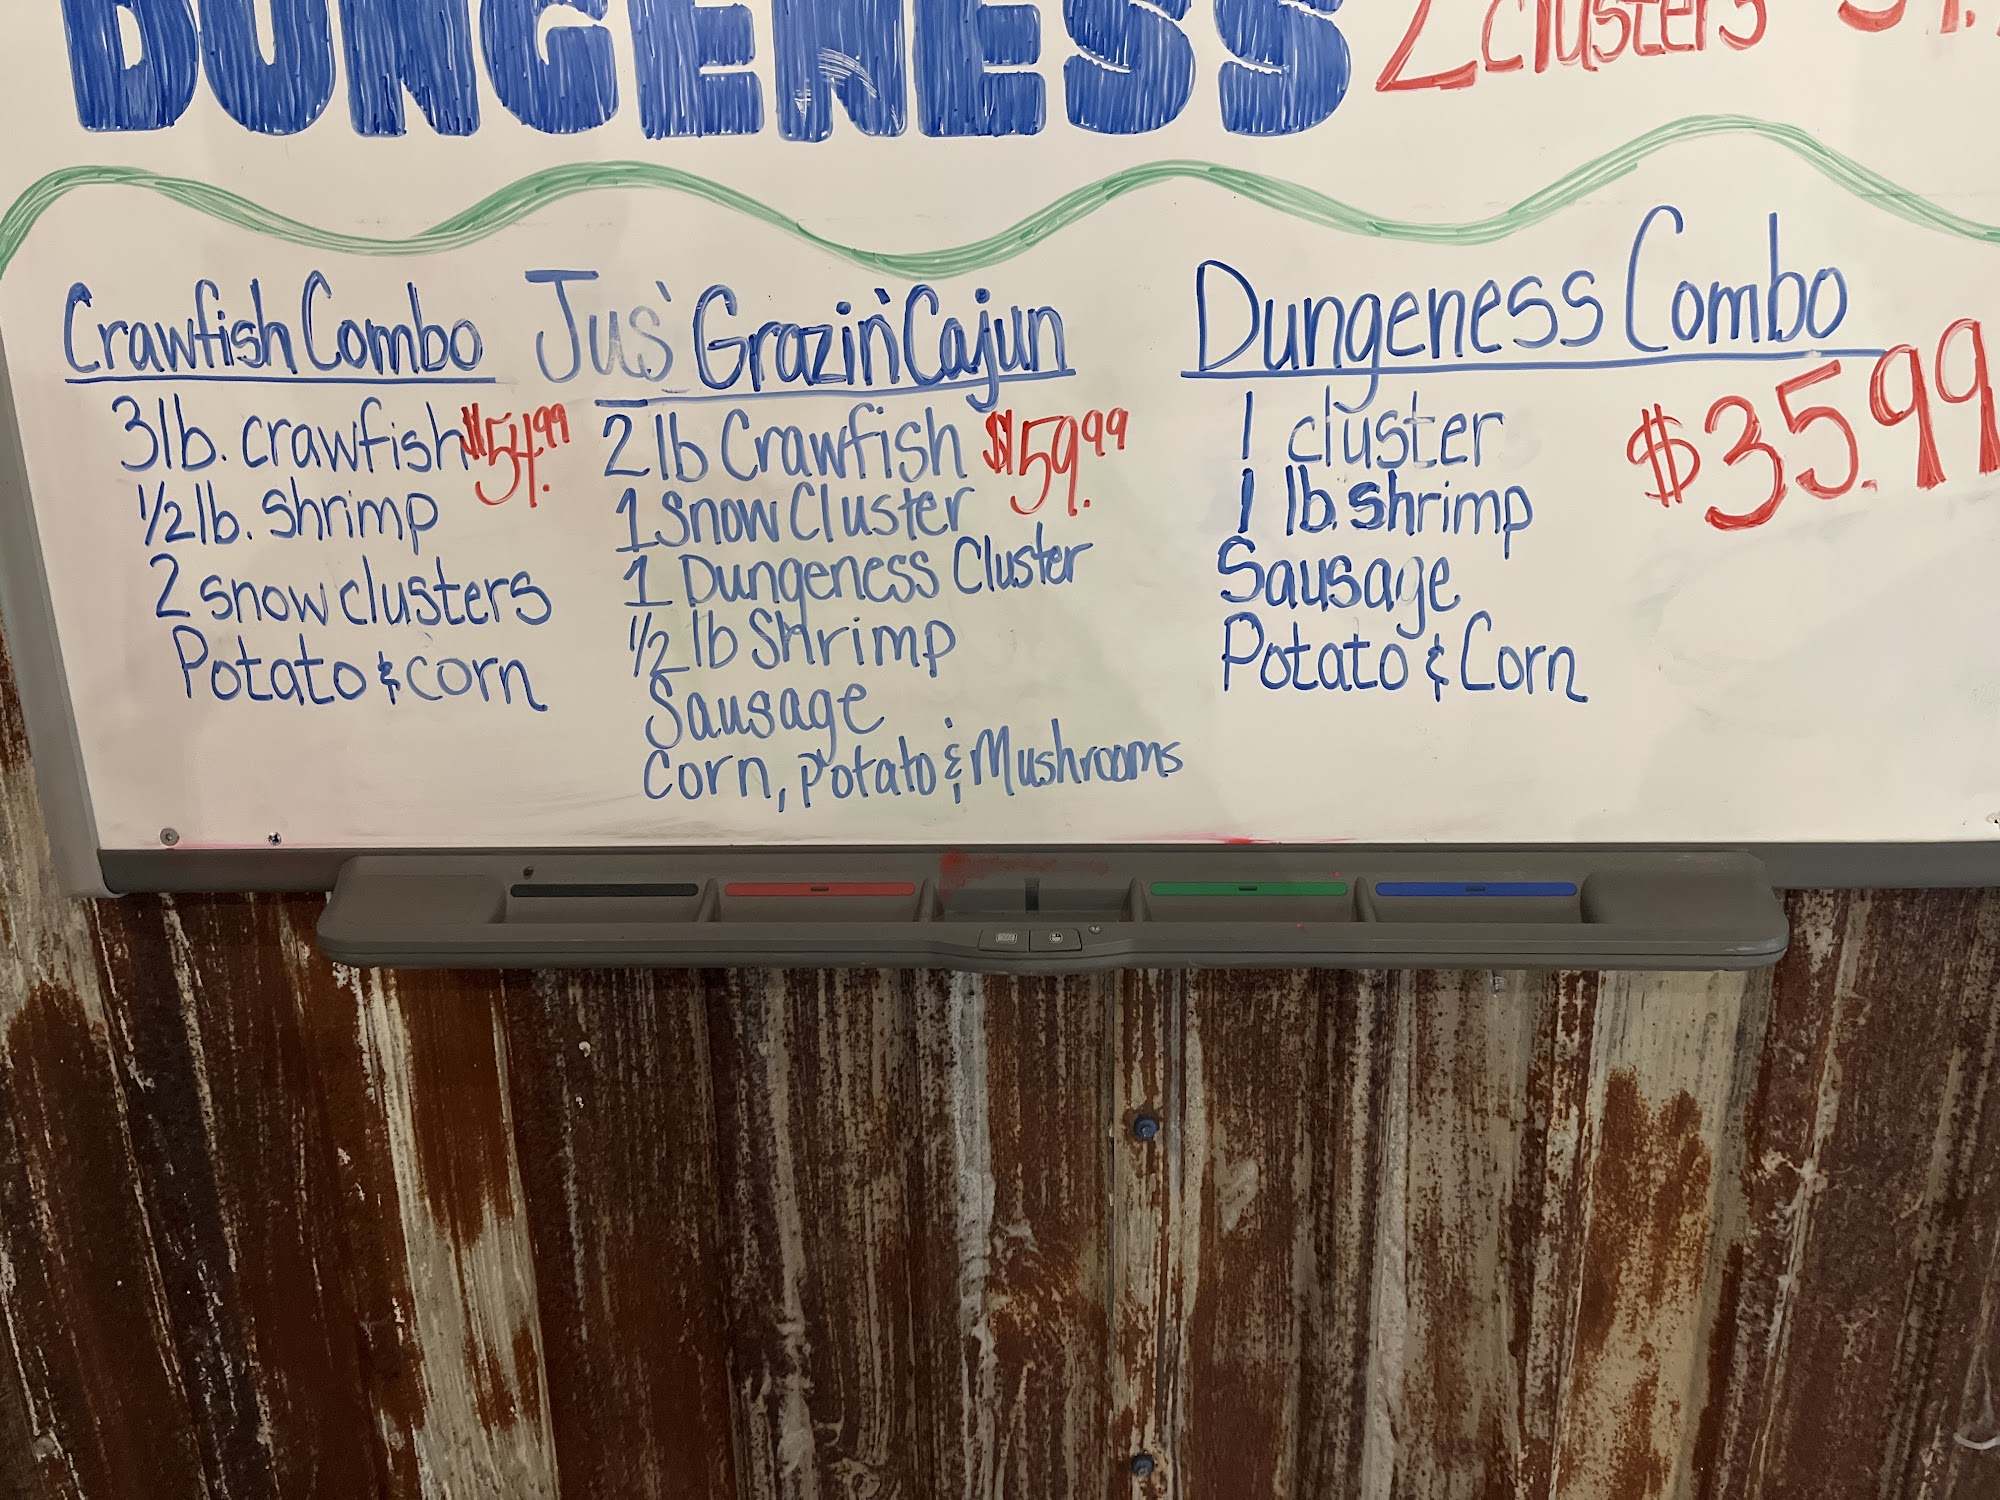 DUNGENESS
2 clusters
Crawfish Combo
3lb. crawfish $54.99
1/2 lb. shrimp
2 snow clusters
Potato & corn
Jus' Grazin' Cajun
2 lb Crawfish $59.99
1 Snow Cluster
1 Dungeness Cluster
1/2 lb Shrimp
Sausage
Corn, Potato & Mushrooms
Dungeness Combo
1 cluster $35.99
1 lb. shrimp
Sausage
Potato & Corn